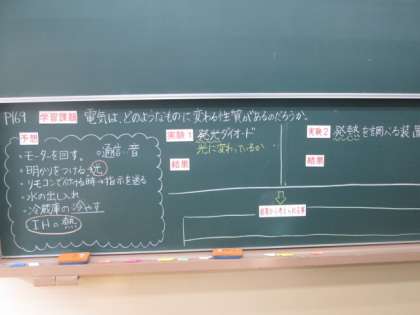 P169 学習課題 電気は、どのようなものに変わる性質があるのだろうか。
予想
・モーターを回す。 ○通信・音
・明かりをつける 光
・リモコンで付ける時→指示を送る
・水の出し入れ
・冷蔵庫の冷やす
IHの熱
実験1 発光ダイオード
光に変わっているか
結果
実験2 発熱を調べる装置
結果